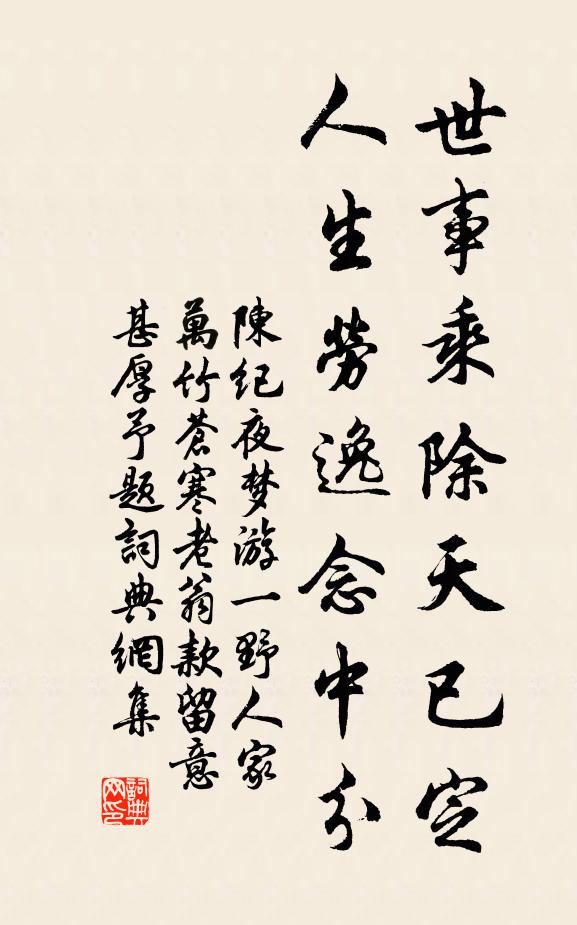 世事乘除天已定
人生勞逸念中分
陳紀夜梦游一野人家
萬竹蒼寒老翁款留意
甚厚予题詞典網集
詞典
网印